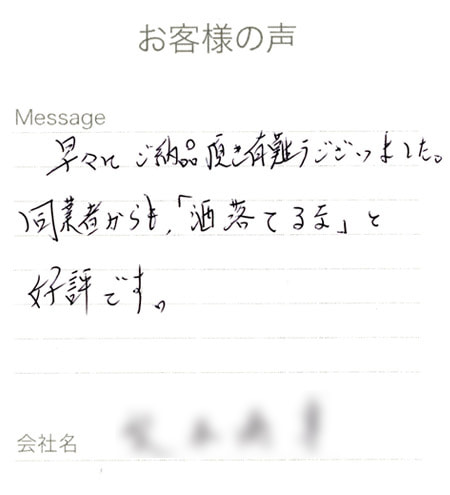 お客様の声
Message
早々にご納品頂き有難うございました。
同業者からも、「洒落てるな」と
好評です。
会社名